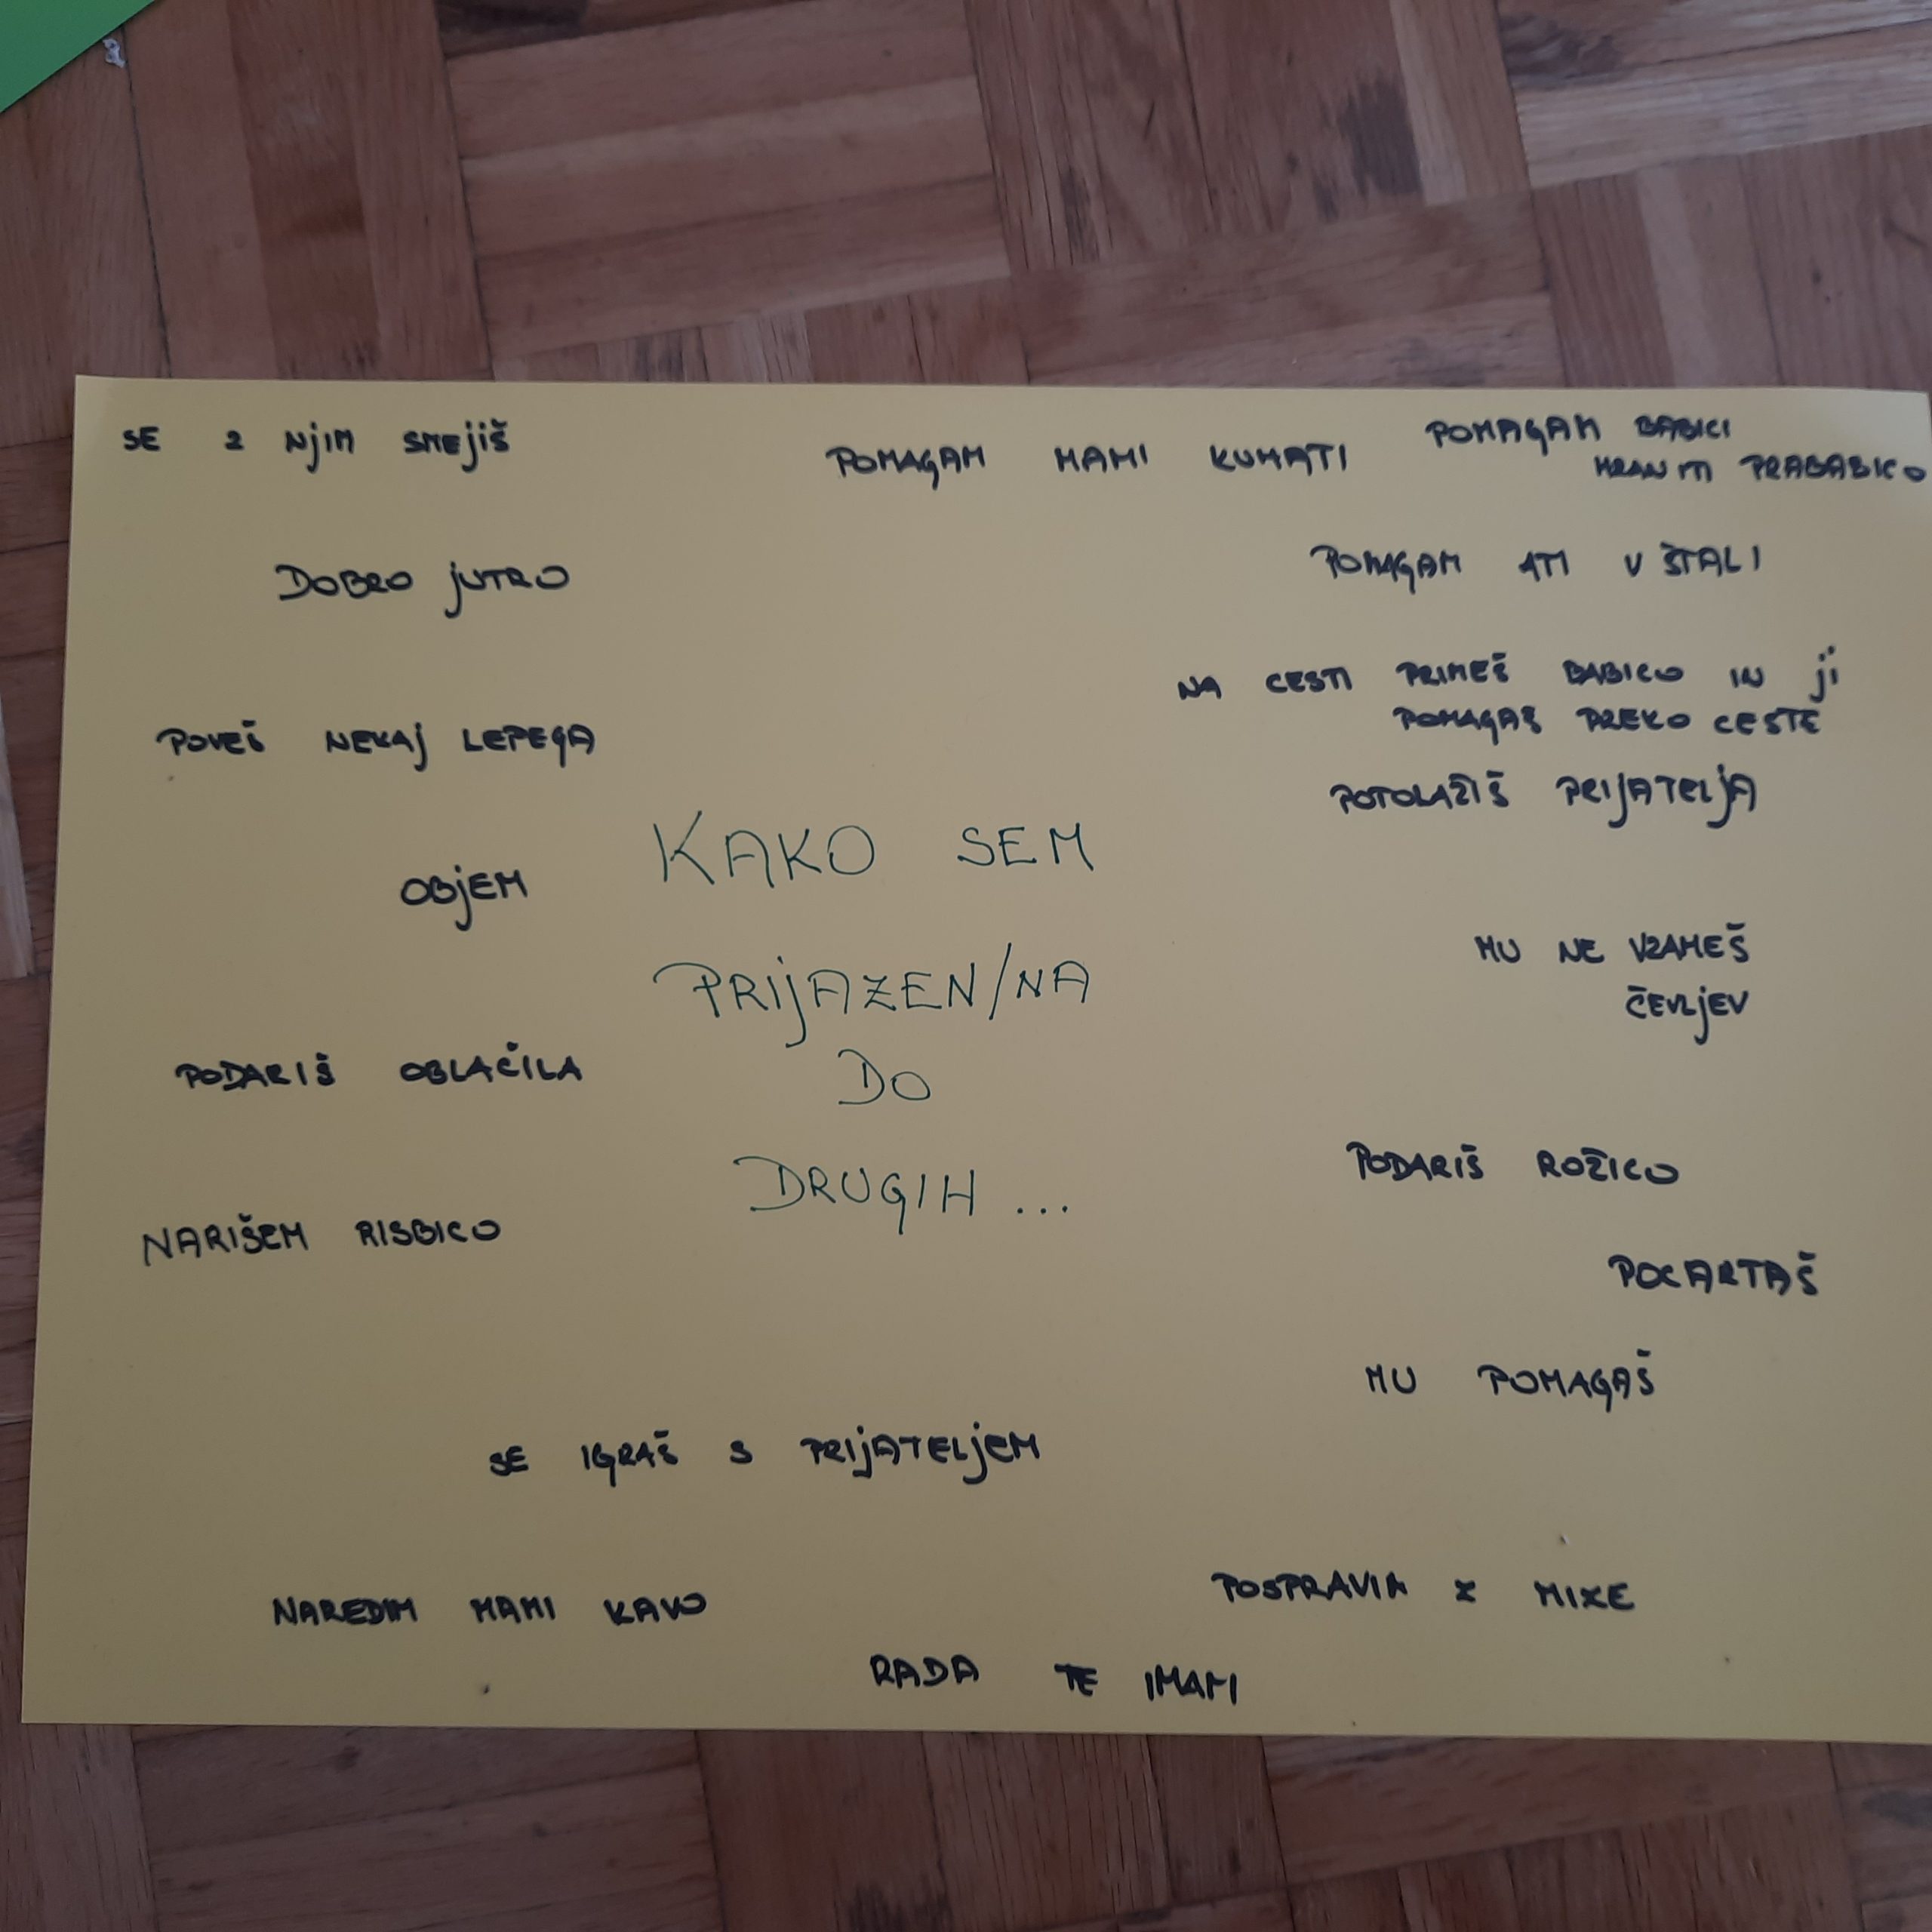 SE Z NJIM SMEJIŠ
POMAGAM MAMI KUHATI
POMAGAM BABICI
HRANITI PRABABICO
DOBRO JUTRO
POMAGAM ATI V ŠTALI
NA CESTI PRIMEŠ BABICO IN JI
POMAGAŠ PREKO CESTE
POVEŠ NEKAJ LEPEGA
POTOLAŽIŠ PRIJATELJA
KAKO SEM
PRIJAZEN/NA
DO
DRUGIH ...
OBJEM
MU NE VZAMEŠ
ČEVLJEV
PODARIŠ OBLAČILA
PODARIŠ ROŽICO
NARIŠEM RISBICO
POCARTAŠ
MU POMAGAŠ
SE IGRAŠ S PRIJATELJEM
NAREDIM MAMI KAVO
POSPRAVIM Z MIZE
RADA TE IMAM